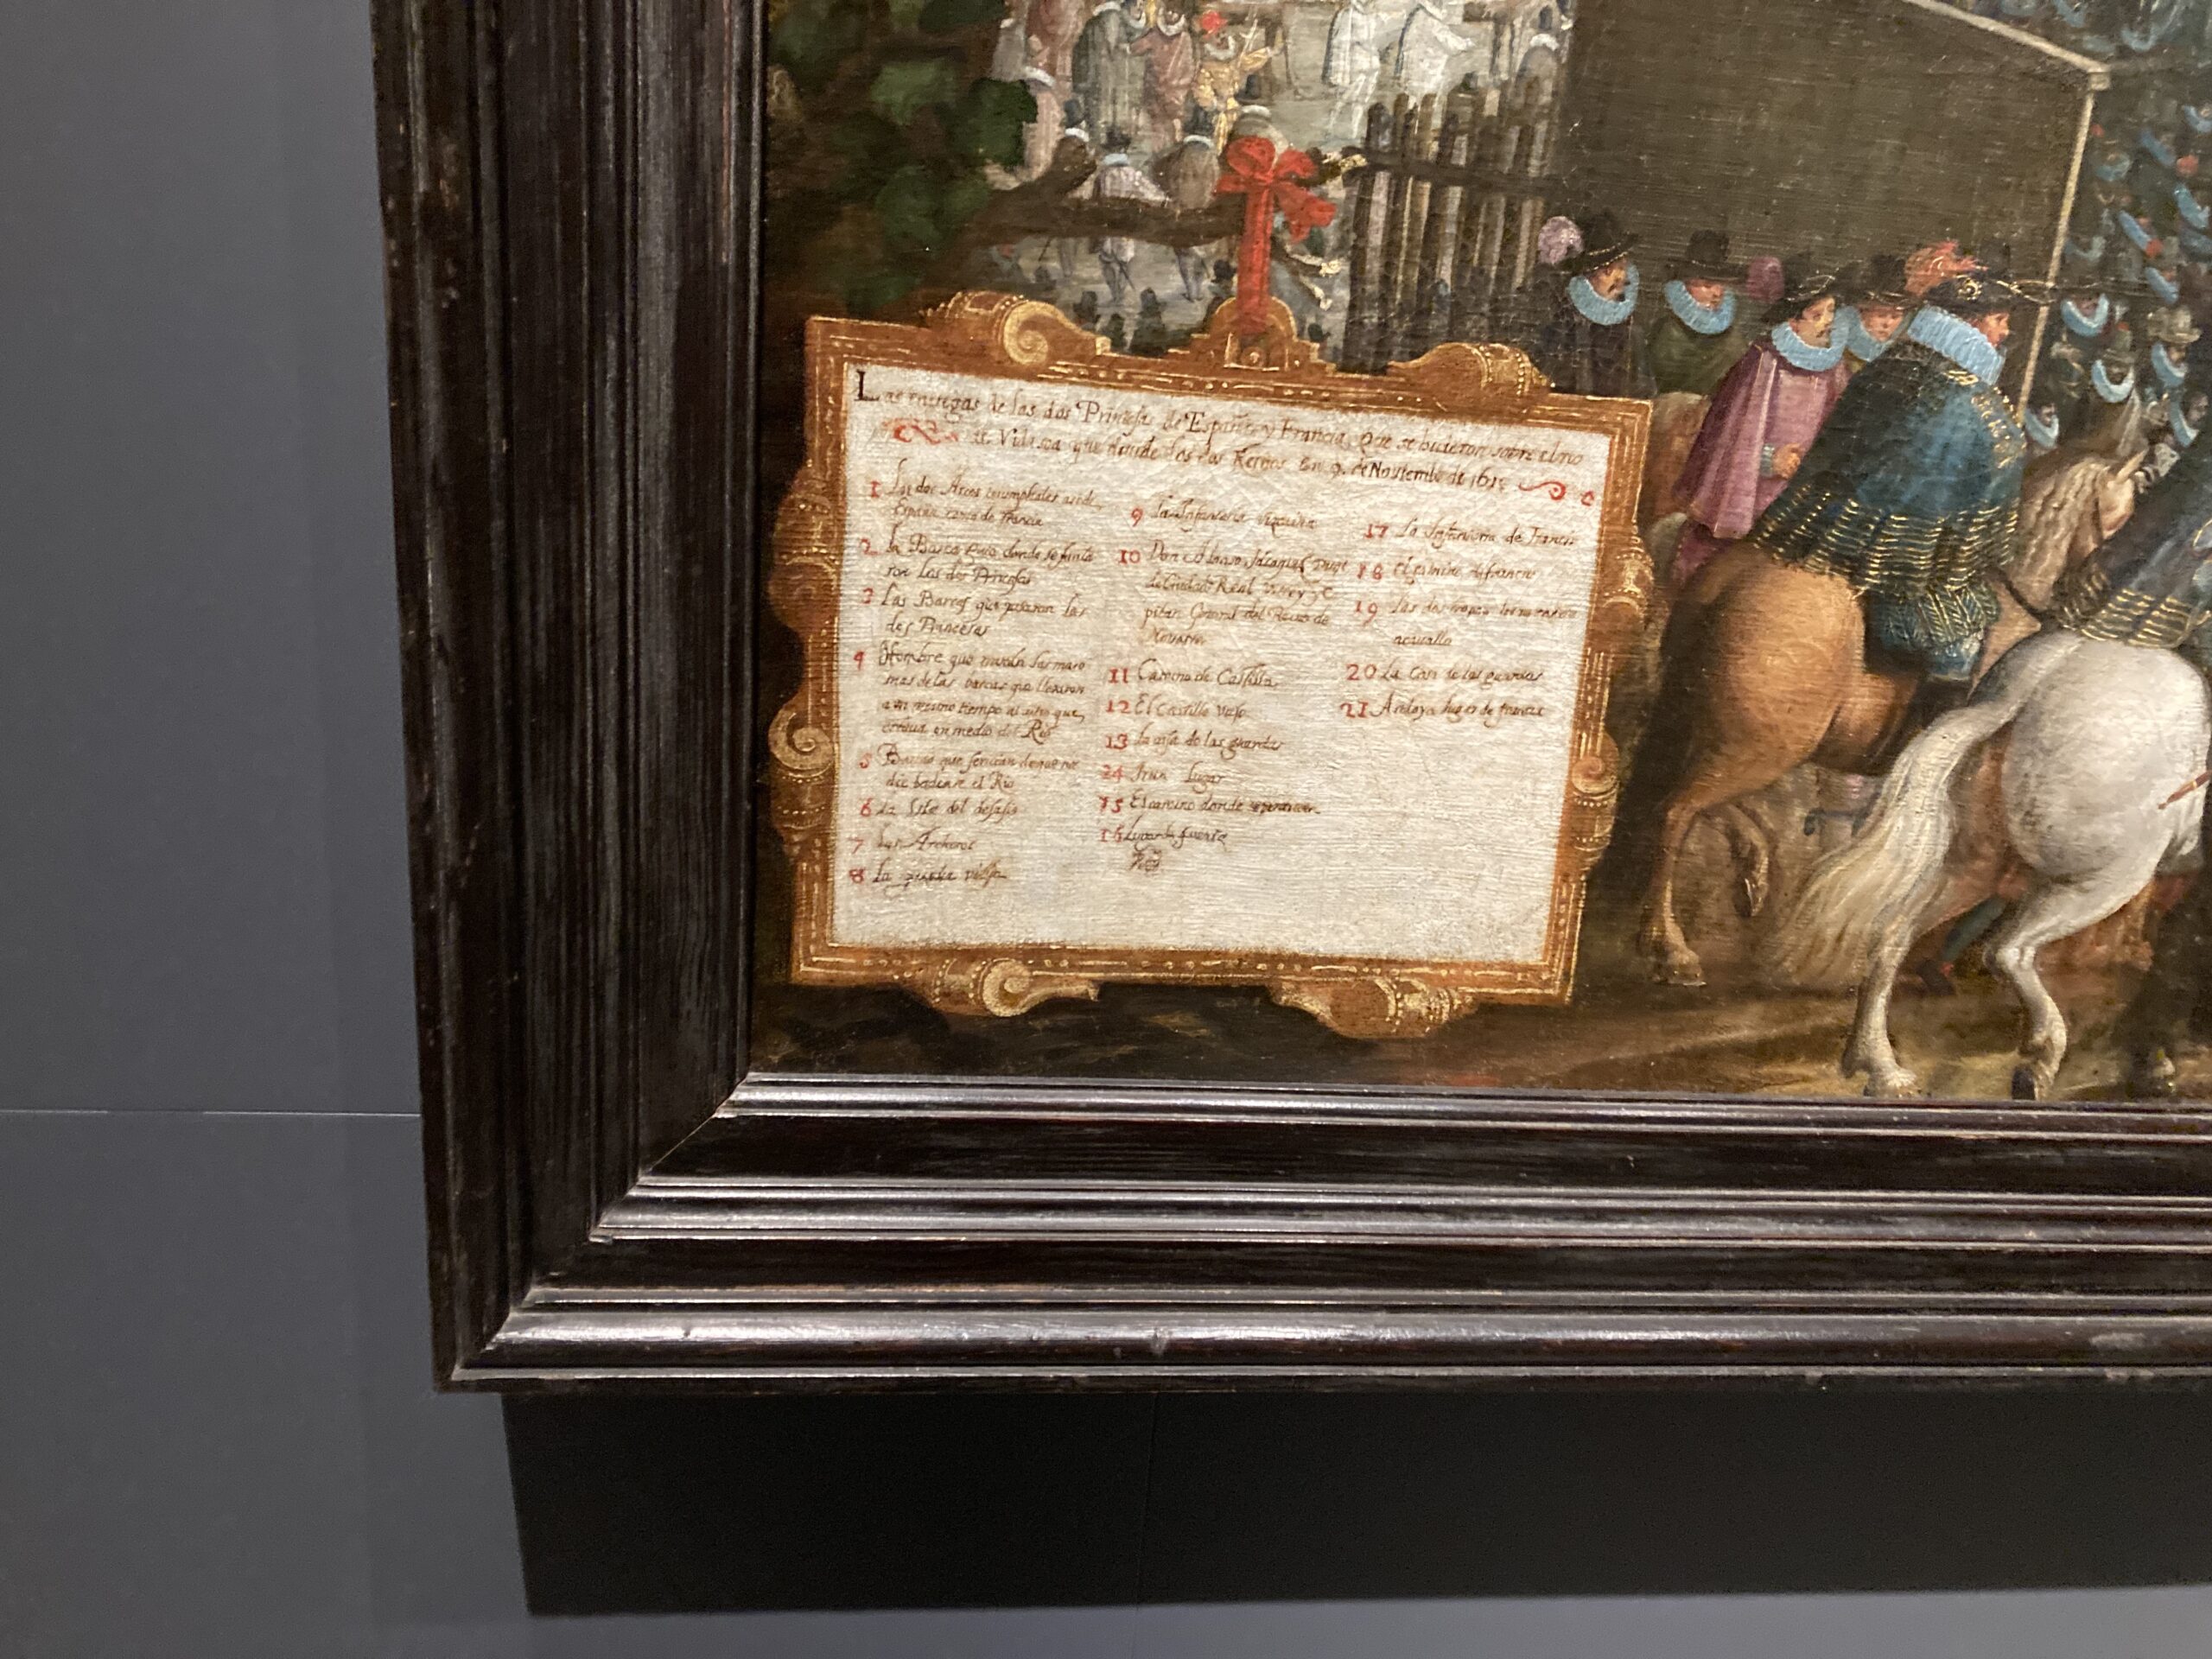 Las entregas de las dos Princesas de España y Francia, Que se hicieron sobre el rio
Vidasoa que divide los dos Reinos En 9. de Noviembre de 161
1 Los dos Arcos triumphales
España de francia
2 la Barca donde se
ron las dos Princesas
3 Las Barcas que pasaron las
dos Princesas
4 Hombre que las maro
mas de las barcas que llegaron
a un mesmo tiempo al sitio que
en medio del Rio
5 Barcas que servian de que na
die badease el Rio
6 La Isla del
7 Los Archeros
8 la vieja
9 la Infanteria
10 Don Idiaquez Duque
de Ciudad Real Virrey y C
pitan General del Reino de
Navarra
11 Camino de Castilla
12 El Castillo viejo
13 la casa de las guardas
24 Irun Lugar
15 El camino donde
16 fuente
Ra
17 La Infanteria de Francia
18 El camino de francia
19 las dos tropas
acauallo
20 La Casa de las guardas
21 Andaya lugar de francia